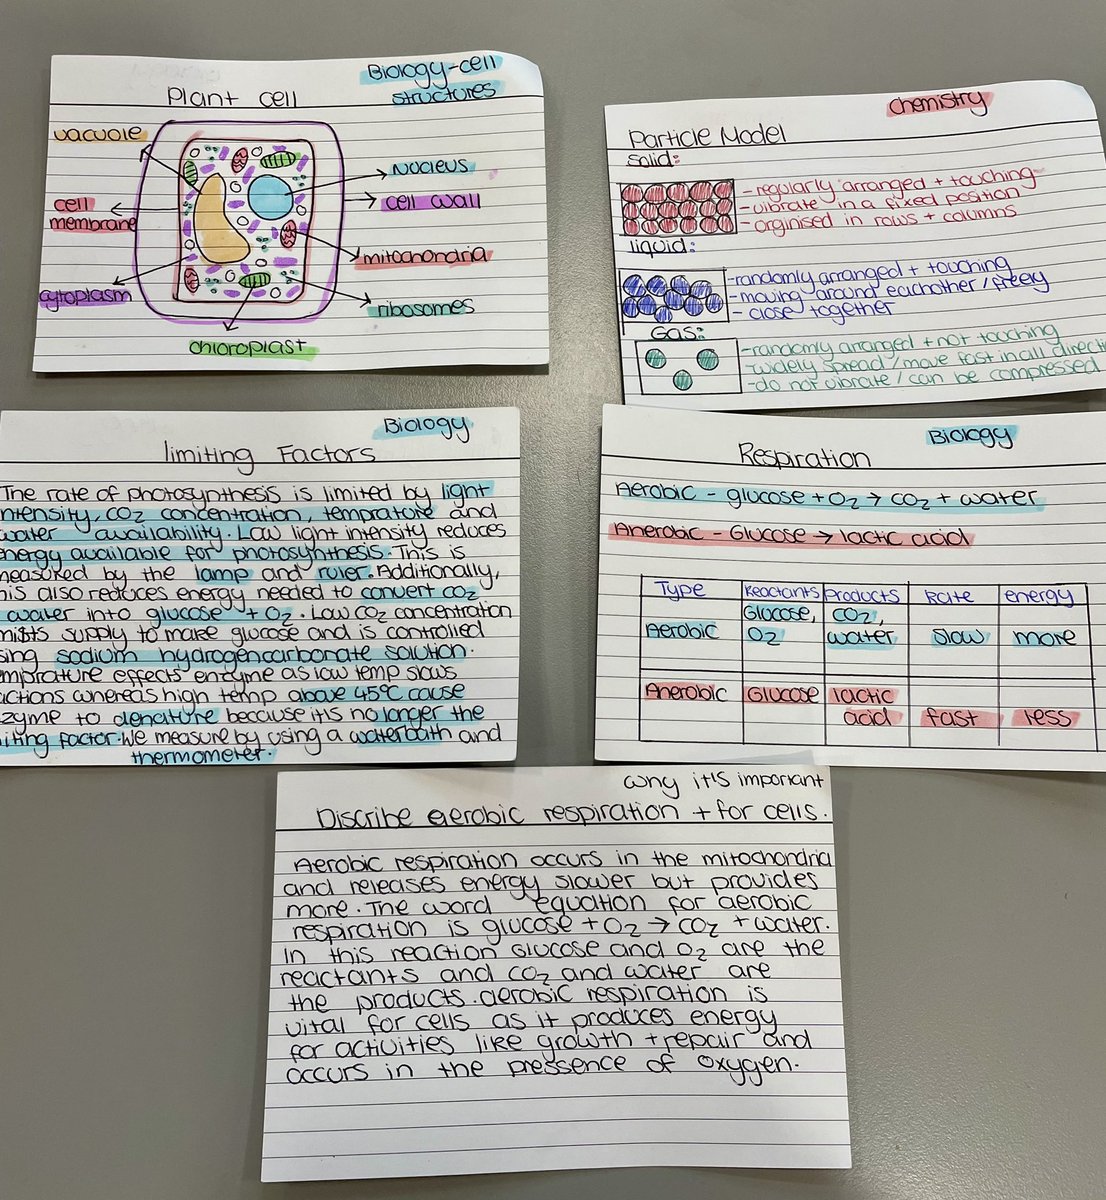 Biology-cell
structures
Plant cell
vacuole
nucleus
cell
membrane
cell wall
mitochondria
cytoplasm
ribosomes
chloroplast
chemistry
Particle Model
solid:
- regularly arranged + touching
- vibrate in a fixed position
- orginised in rows + columns
liquid:
- randomly arranged + touching
- moving around eachother / freely
- close together
Gas:
- randomly arranged + not touching
- widely spread / move fast in all directi
- do not vibrate / can be compressed
Biology
limiting Factors
The rate of photosynthesis is limited by light
ntensity, CO2 concentration, temprature and
water availability. Low light intensity reduces
energy available for photosynthesis. This is
measured by the lamp and ruler. Additionally,
his also reduces energy needed to convert CO2
water into glucose + O2. Low CO2 concentration
mists supply to make glucose and is controlled
sing sodium hydrogencarbonate solution.
mprature effects enzyme as low temp slows
actions whereas high temp above 45°C cause
zyme to denature because it is no longer the
iting factor. We measure by using a waterbath and
thermometer.
Biology
Respiration
Aerobic - glucose + O2 → CO2 + water
Anerobic - Glucose → lactic acid
Type Reactants Products Rate energy
Aerobic Glucose, O2 CO2, water slow more
Anerobic Glucose lactic acid fast less
why it's important
Discribe aerobic respiration + for cells.
Aerobic respiration occurs in the mitochondria
and releases energy slower but provides
more. The word equation for aerobic
respiration is glucose + O2 → CO2 + water.
In this reaction Glucose and O2 are the
reactants and CO2 and water are
the products. aerobic respiration is
vital for cells as it produces energy
for activities like growth + repair and
occurs in the pressence of oxygen.